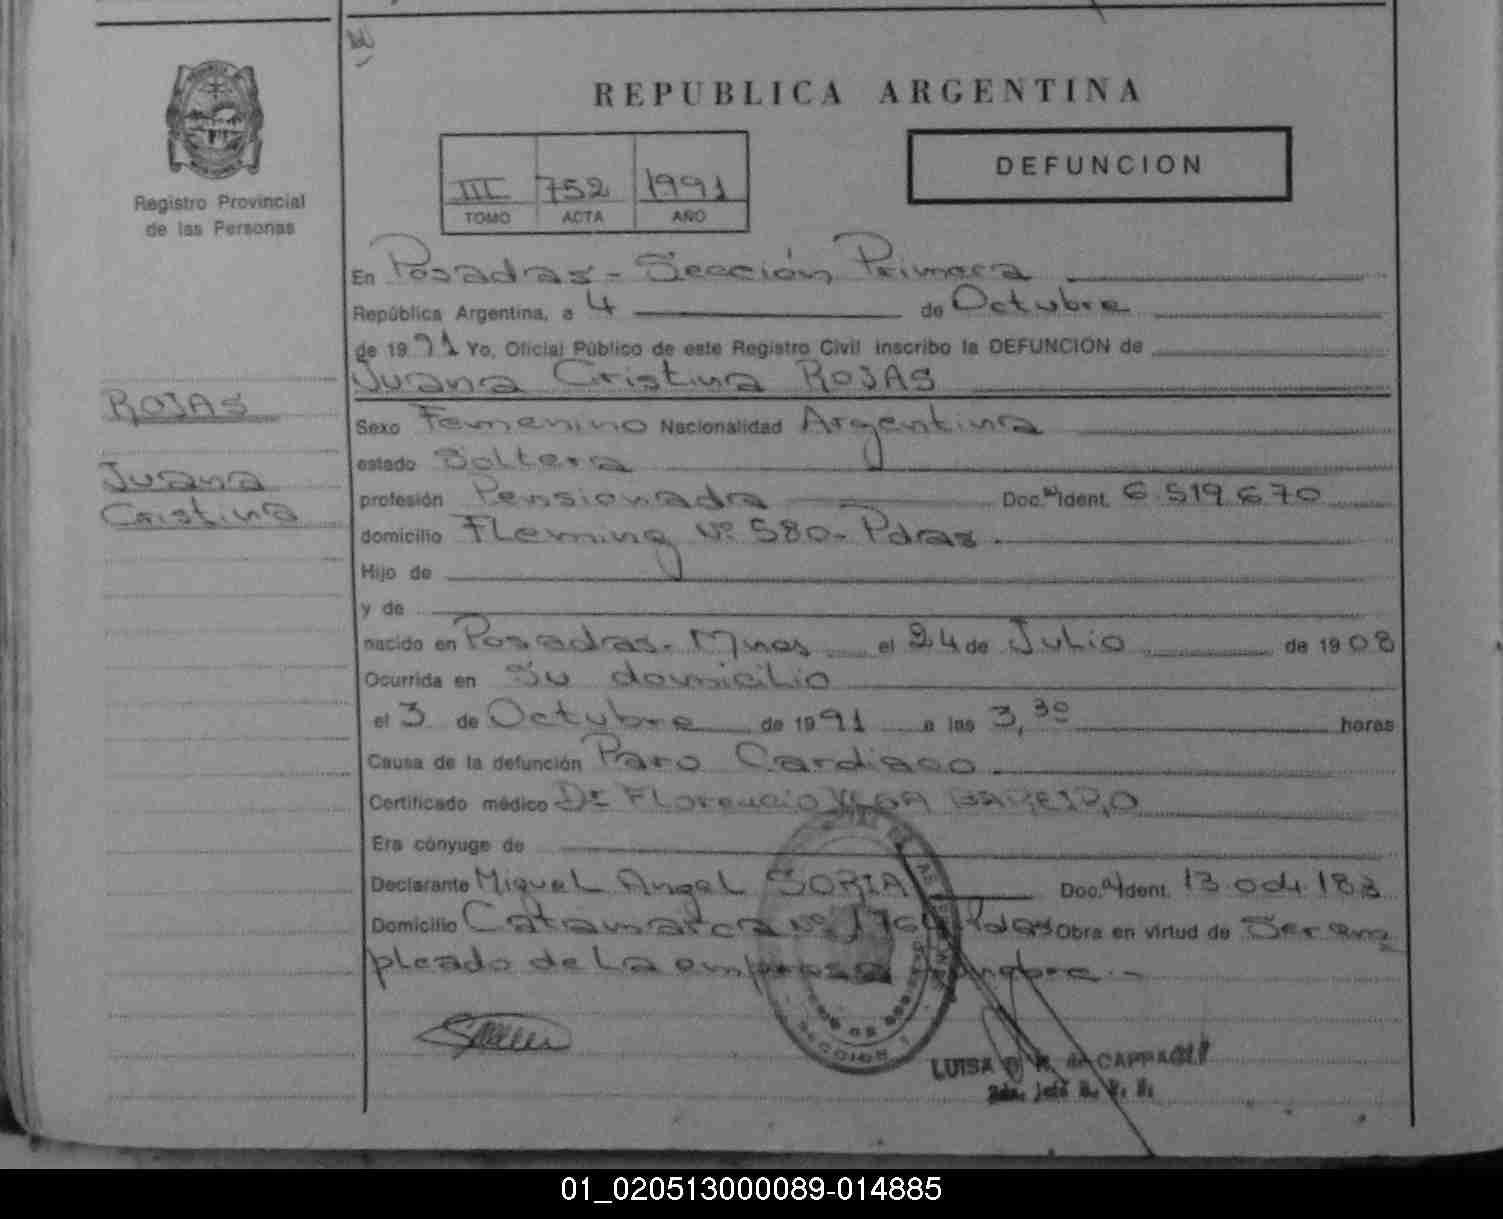 REPUBLICA ARGENTINA
Registro Provincial
de las Personas
III 752 1991
TOMO ACTA AÑO
DEFUNCION
En Posadas - Sección Primera
República Argentina, a 4 de Octubre
de 1991 Yo, Oficial Público de este Registro Civil inscribo la DEFUNCION de
Juana Cristina ROJAS
ROJAS
Juana
Cristina
Sexo Femenino Nacionalidad Argentina
estado Soltera
profesión Pensionada Doc. Ident. 6.519.670
domicilio Fleming Nº 580- Pdas.
Hijo de
y de
nacido en Posadas- Mnes el 24 de Julio de 1908
Ocurrida en Su domicilio
el 3 de Octubre de 1991 a las 3,30 horas
Causa de la defunción Paro Cardiaco
Certificado médico Dr Florencio
Era cónyuge de
Declarante Miguel Angel SORIA Doc. Ident. 13.004.183
Domicilio Catamarca Nº Pdas Obra en virtud de Ser em
pleado de La empresa
SECCION 1
LUISA
01_020513000089-014885